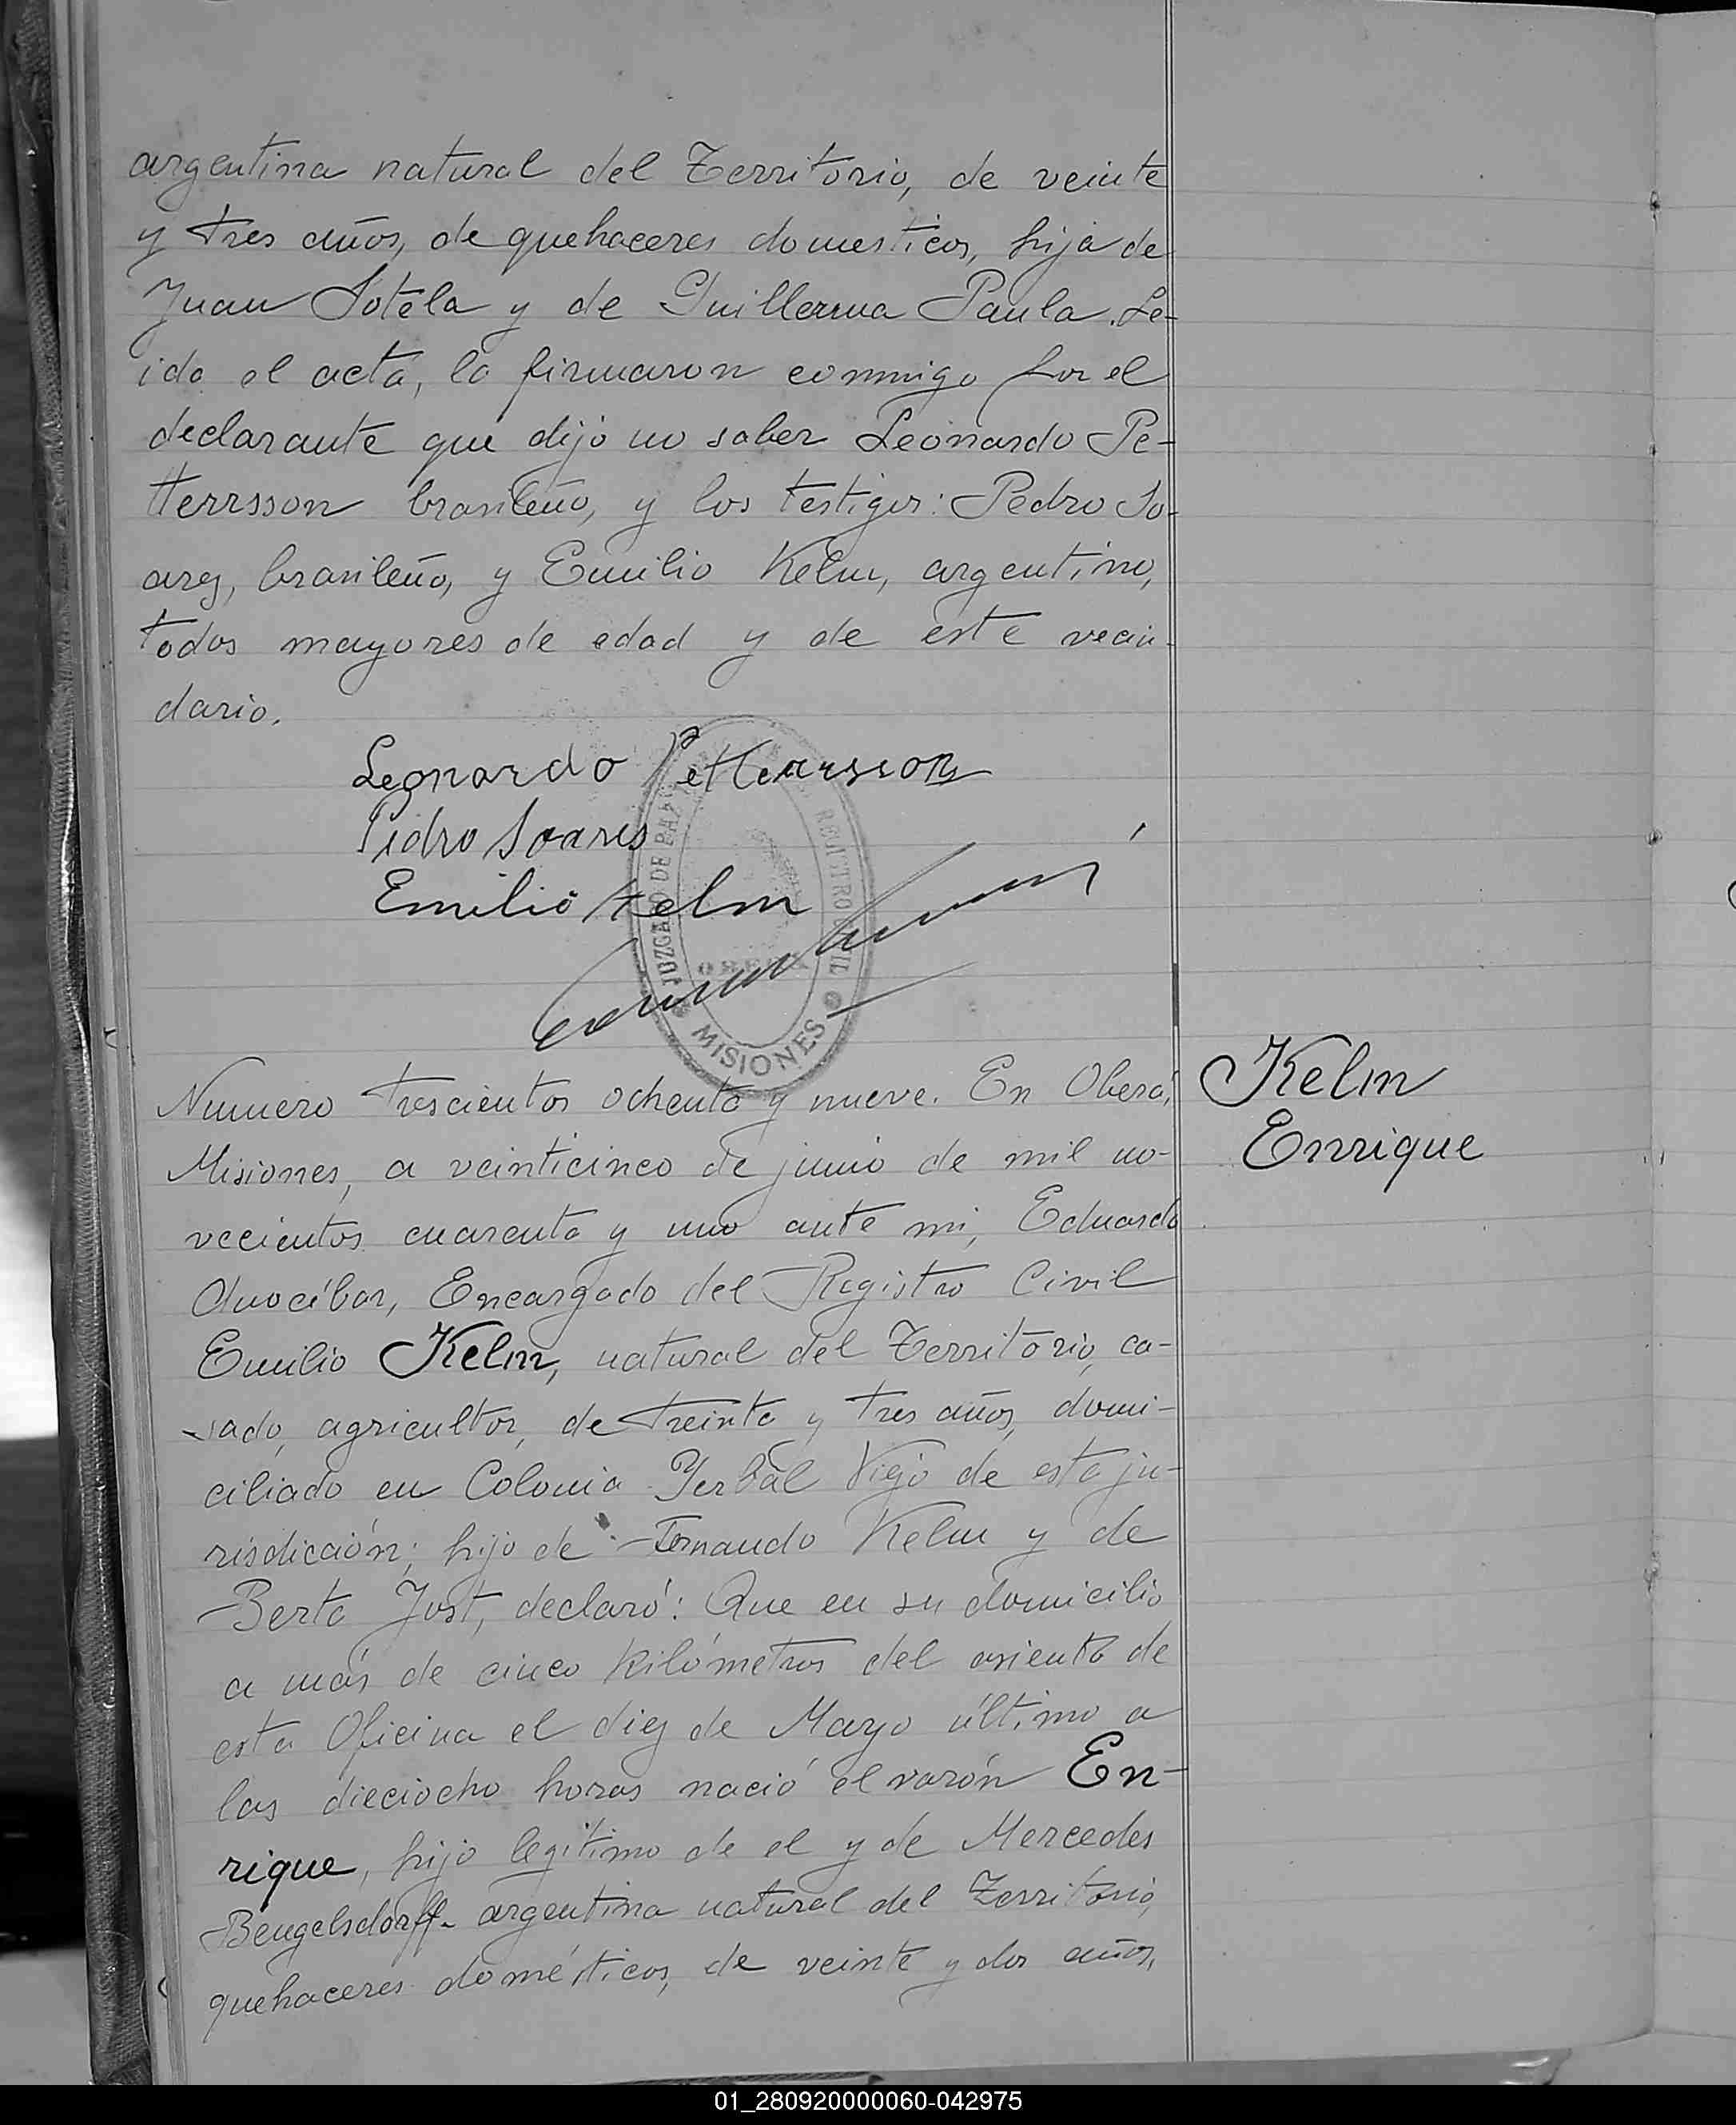 argentina natural del Territorio, de veinte
y tres años, de quehaceres domesticos, hija de
Juan Sotela y de Guillerma Paula. Le-
ida el acta, la firmaron conmigo por el
declarante que dijo no saber Leonardo Pe-
tterrsson brasileño, y los testigos: Pedro So-
arez, brasileño, y Emilio Kelm, argentino,
todos mayores de edad y de este vecin-
dario.
Leonardo Pettersson
Pedro Soares
Emilio Kelm
JUZGADO DE PAZ
REGISTRO CIVIL
OBERA
MISIONES
Numero trescientos ochenta y nueve. En Oberá,
Misiones, a veinticinco de junio de mil no-
vecientos cuarenta y uno ante mi, Eduardo
Encargado del Registro Civil
Emilio Kelm, natural del Territorio, ca-
sado, agricultor, de treinta y tres años, domi-
ciliado en Colonia Yerbal Viejo de esta ju-
risdicción; hijo de Fernando Kelm y de
Berta Jost, declaró: Que en su domicilio
a más de cinco kilómetros del asiento de
esta Oficina el diez de Mayo último a
las dieciocho horas nació el varón En-
rique, hijo legitimo de el y de Mercedes
Bengelsdorff argentina natural del Territorio,
quehaceres domésticos, de veinte y dos años,
Kelm
Enrique
01_280920000060-042975